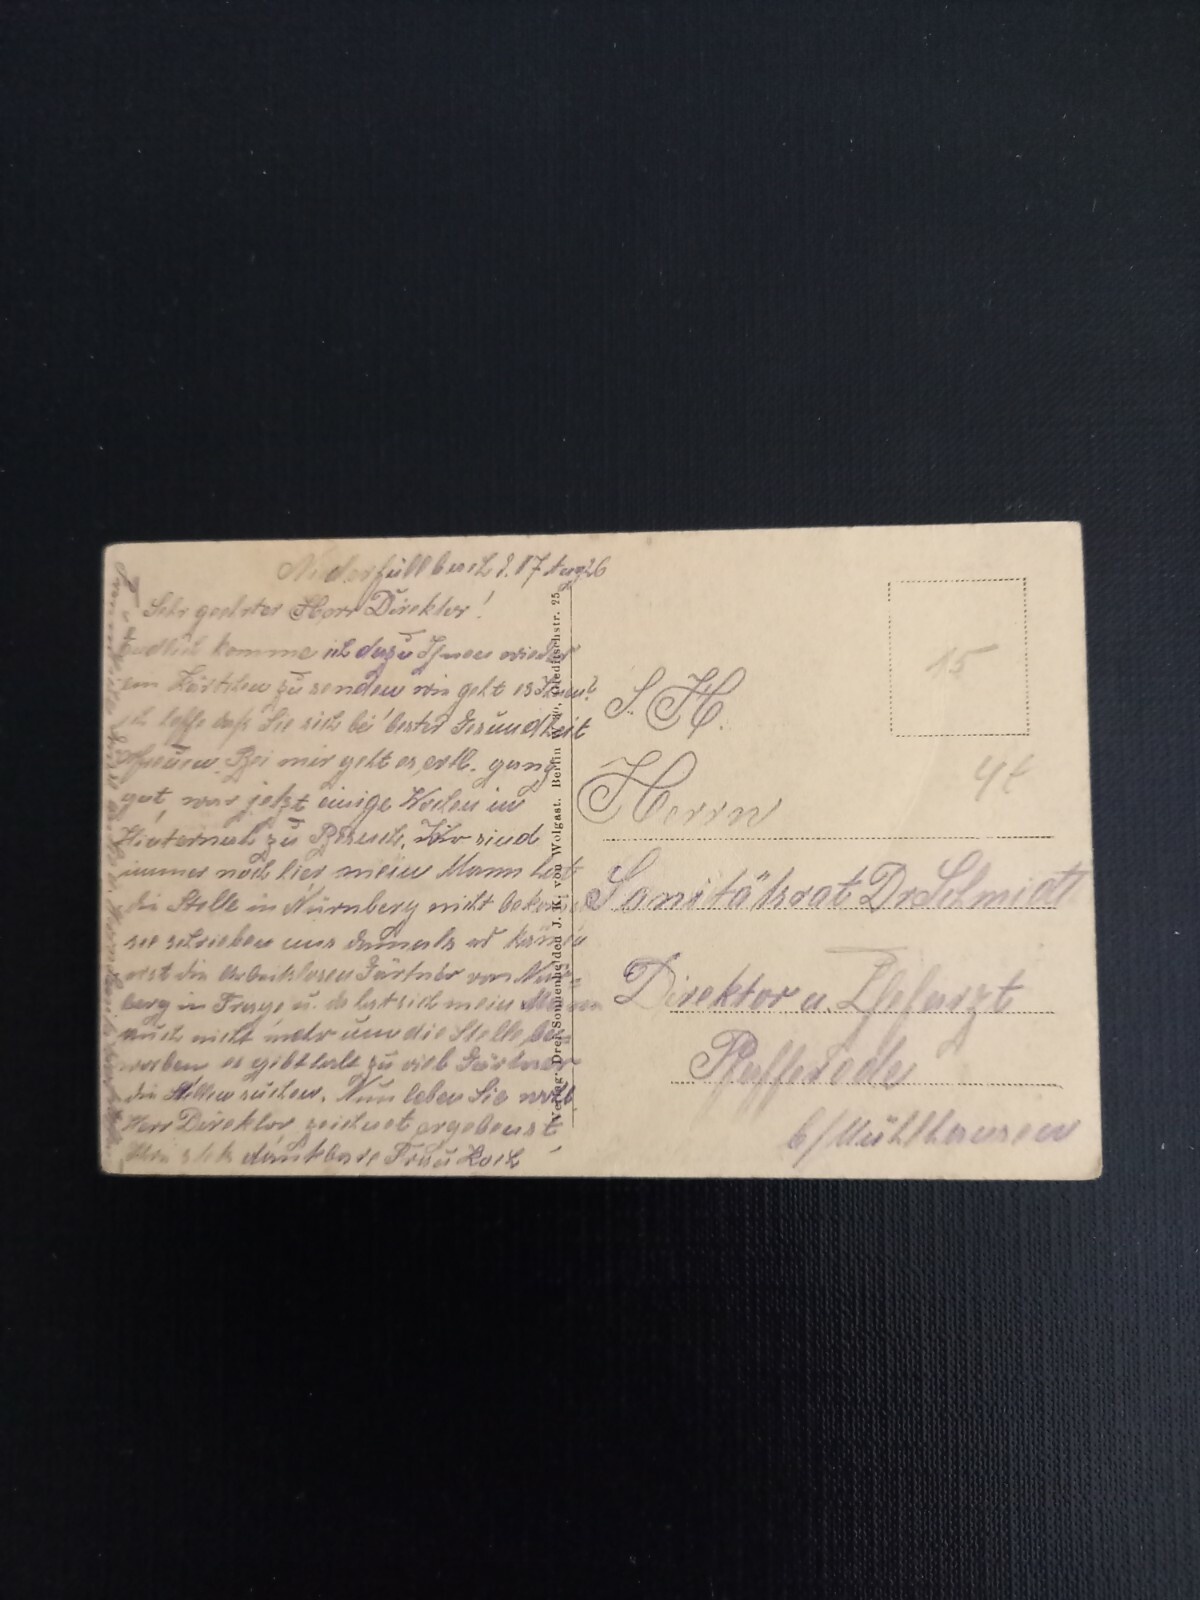 Niederfüllbach d. 17 Aug 26
Sehr geehrter Herr Direktor!
endlich komme ich dazu Ihnen wieder
ein Kärtchen zu senden wie geht es Ihnen?
ich hoffe daß Sie sich bei bester Gesundheit
erfreuen. Bei mir geht es, ganz
gut, war jetzt einige Wochen in
zu Besuch. Wir sind
immer noch hier mein Mann hat
die Stelle in Nürnberg nicht bekommen
sie schrieben uns damals es kämen
erst die arbeitslosen Gärtner von Nürn-
berg in Frage u. da hat sich mein Mann
auch nicht mehr um die Stelle be-
worben es gibt halt zu viele Gärtner
die Stellen suchen. Nun leben Sie wohl
Herr Direktor zeichnet ergebenst
Ihre stets dankbare Frau Koch
Verlag: Drei Sonnenhelden J. K. von Wolgast. Berlin Diedrichstr. 25.
15
4t
S. H.
Herrn
Sanitätsrat Dr Schmidt
Direktor u. Chefarzt
Pfafferode
b/Mühlhausen